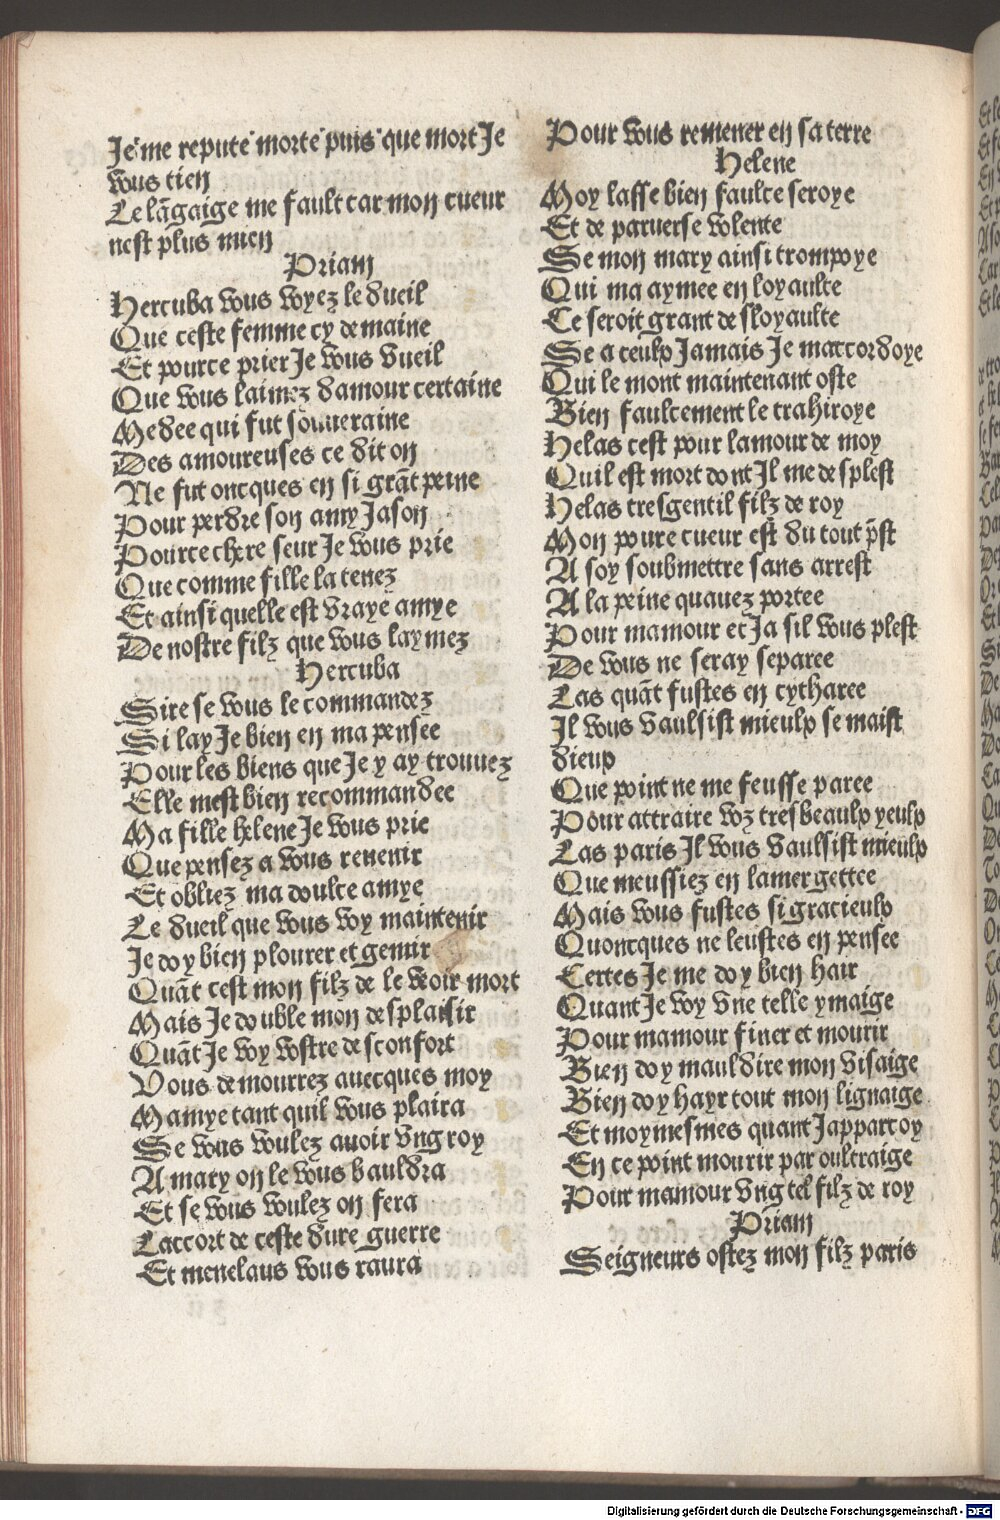 Je me repute morte puis que mort Je
vous tien
Le lãgaige me fault car mon cueur
nest plus mien
Priam
Hercuba vous voyez le dueil
Que ceste femme cy demaine
Et pource prier Je vous vueil
Que vous laimez damour certaine
Medee qui fut souueraine
Des amoureuses ce dit on
Ne fut oncques en si grãt peine
Pour perdre son amy Jason
Pource chere seur Je vous prie
Que comme fille la tenez
Et ainsi quelle est vraye amye
De nostre filz que vous laymez
Hercuba
Sire se vous le commandez
Si lay Je bien en ma pensee
Pour les biens que Je y ay trouuez
Elle mest bien recommandee
Ma fille helene Je vous prie
Que pensez a vous reuenir
Et obliez ma doulce amye
Le dueil que vous voy maintenir
Je doy bien plourer et gemir
Quãt cest mon filz de le veoir mort
Mais Je double mon desplaisir
Quãt Je voy vostre desconfort
Vous demourrez auecques moy
Mamye tant quil vous plaira
Se vous voulez auoir vng roy
A mary on le vous bauldra
Et se vous voulez on fera
Laccort de ceste dure guerre
Et menelaus vous raura
Pour vous remener en sa terre
Helene
Moy lasse bien faulce seroye
Et de paruerse volente
Se mon mary ainsi trompoye
Qui ma aymee en loyaulte
Ce seroit grant desloyaulte
Se a ceulx Jamais Je maccordoye
Qui le mont maintenant oste
Bien faulcement le trahiroye
Helas cest pour lamour de moy
Quil est mort dont Il me desplest
Helas tresgentil filz de roy
Mon poure cueur est du tout p̃st
A soy soubmettre sans arrest
A la peine quauez portee
Pour mamour et Ja sil vous plest
De vous ne seray separee
Las quãt fustes en cytharee
Il vous vaulsist mieulx se maist
dieux
Que point ne me feusse paree
Pour attraire voz tresbeaulx yeulx
Las paris Il vous vaulsist mieulx
Que meussiez en lamer gettee
Mais vous fustes si gracieulx
Quoncques ne leustes en pensee
Certes Je me doy bien hair
Quant Je voy vne telle ymaige
Pour mamour finer et mourir
Bien doy mauldire mon visaige
Bien doy hayr tout mon lignaige
Et moymesmes quant Jappercoy
En ce point mourir par oultraige
Pour mamour vng tel filz de roy
Priam
Seigneurs ostez mon filz paris
Digitalisierung gefördert durch die Deutsche Forschungsgemeinschaft - DFG